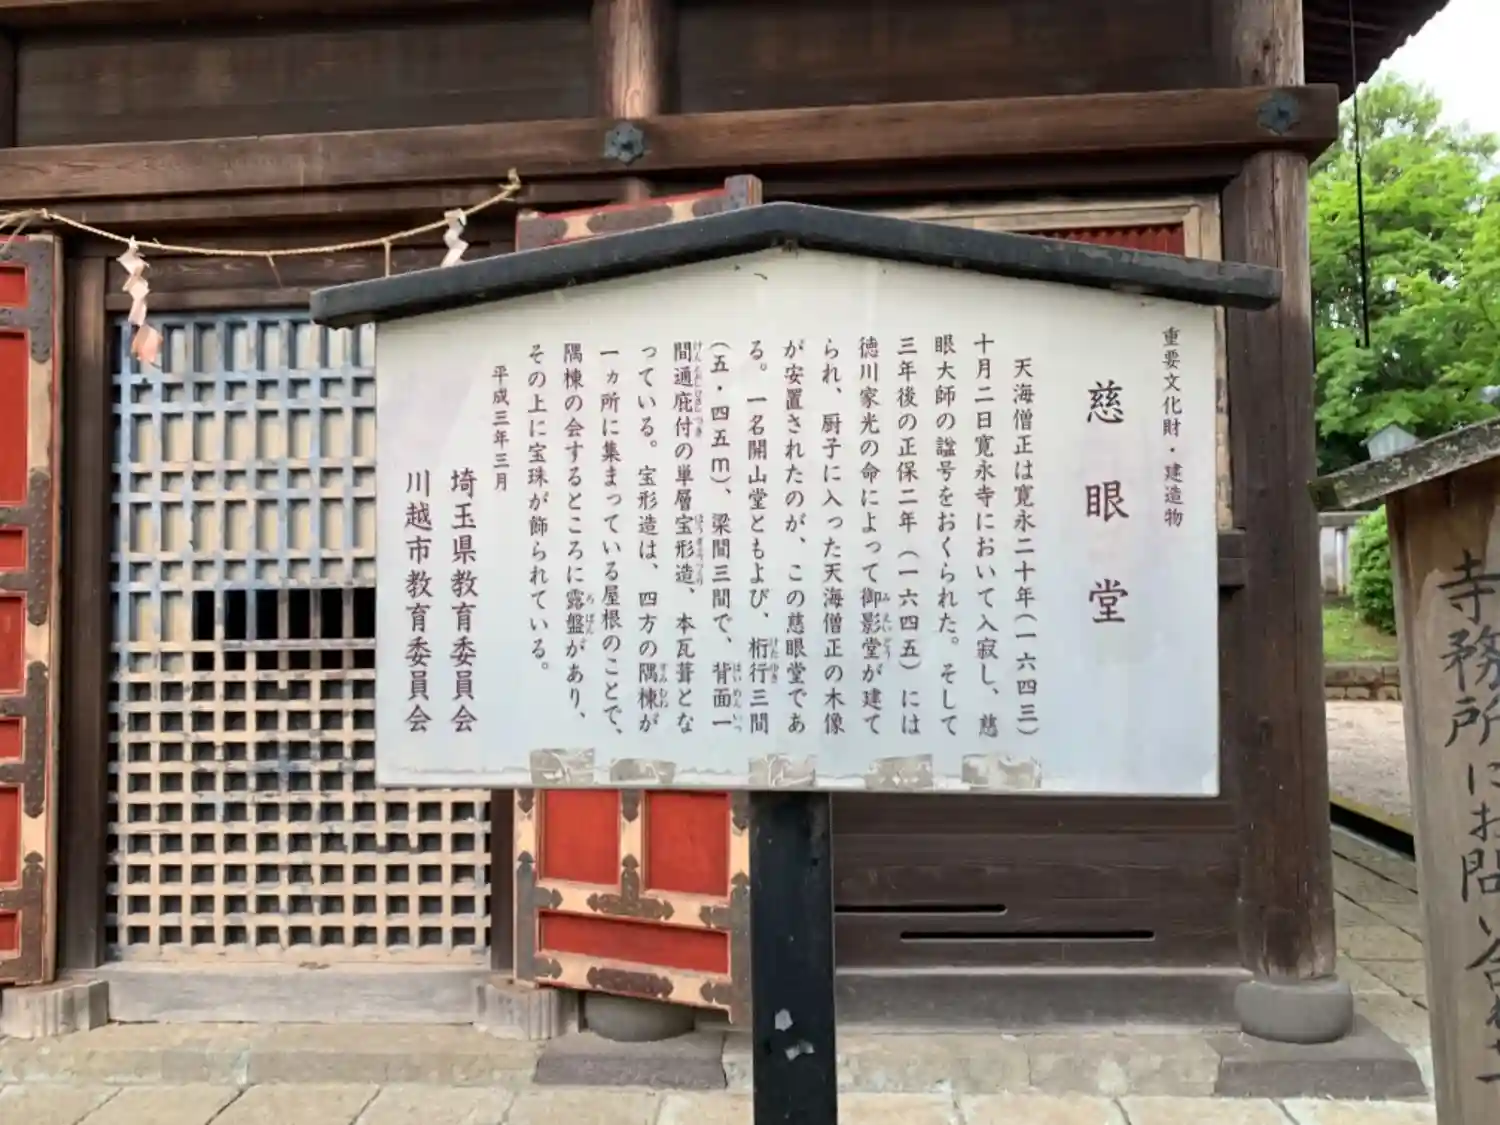 重要文化財・建造物
慈眼堂
天海僧正は寛永二十年(一六四三)
十月二日寛永寺において入寂し、慈
眼大師の諡号をおくられた。そして
三年後の正保二年(一六四五)には
徳川家光の命によって御影堂が建て
られ、厨子に入った天海僧正の木像
が安置されたのが、この慈眼堂であ
る。一名開山堂ともよび、桁行三間
(五・四五m)、梁間三間で、背面一
間通庇付の単層宝形造、本瓦葺とな
っている。宝形造は、四方の隅棟が
一ヵ所に集まっている屋根のことで、
隅棟の会するところに露盤があり、
その上に宝珠が飾られている。
平成三年三月
埼玉県教育委員会
川越市教育委員会
寺務所にお問い合わせ